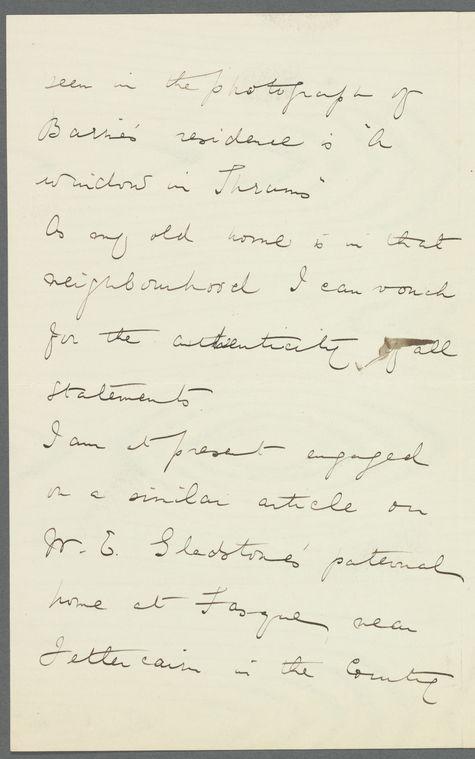 seen in the photograph of
Barrie's residence is "A
window in Thrums"
As my old home is in that
neighbourhood I can vouch
for the authenticity of all
statements
I am at present engaged
on a similar article on
W. E. Gladstone's paternal
home at Fasque, near
Fettercairn in the County